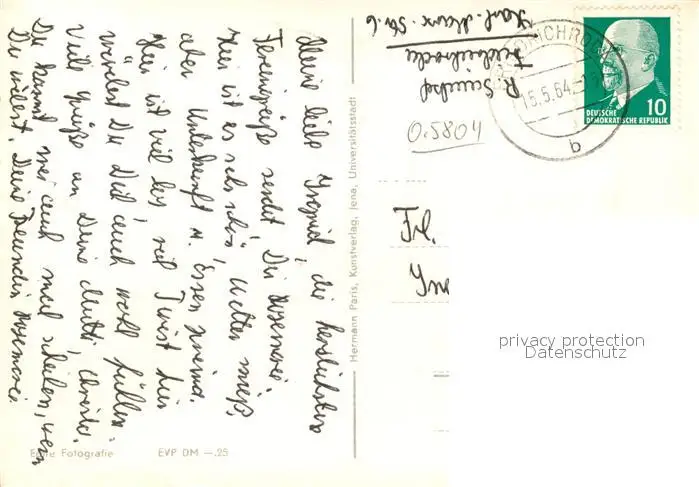 Meine liebe Irmgard, die herzlichsten
Feriengrüße sendet Dir Rosemarie.
Hier ist es sehr schön, Wetter mies,
aber Unterkunft u. Essen prima.
Hier ist viel los, viel Twist hier
würdest Du Dich auch wohl fühlen.
Viele Grüße an Deine Mutti, Christel.
Du kannst mir auch mal schreiben, wenn
Du willst. Deine Freundin Rosemarie
Echte Fotografie EVP DM —.25
Hermann Paris, Kunstverlag, Jena, Universitätsstadt
R.
Friedrichroda
Karl-Marx-Str. 6
0.5804
FRIEDRICHRODA
15.5.64
b
10
DEUTSCHE
DEMOKRATISCHE REPUBLIK
Frl.
privacy protection
Datenschutz